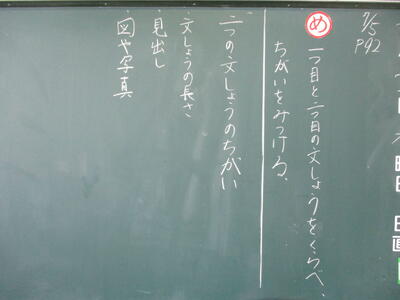 7/5
P92
め 一つ目と二つ目の文しょうをくらべ、
ちがいをみつける。
二つの文しょうのちがい
・文しょうの長さ
・見出し
・図や写真